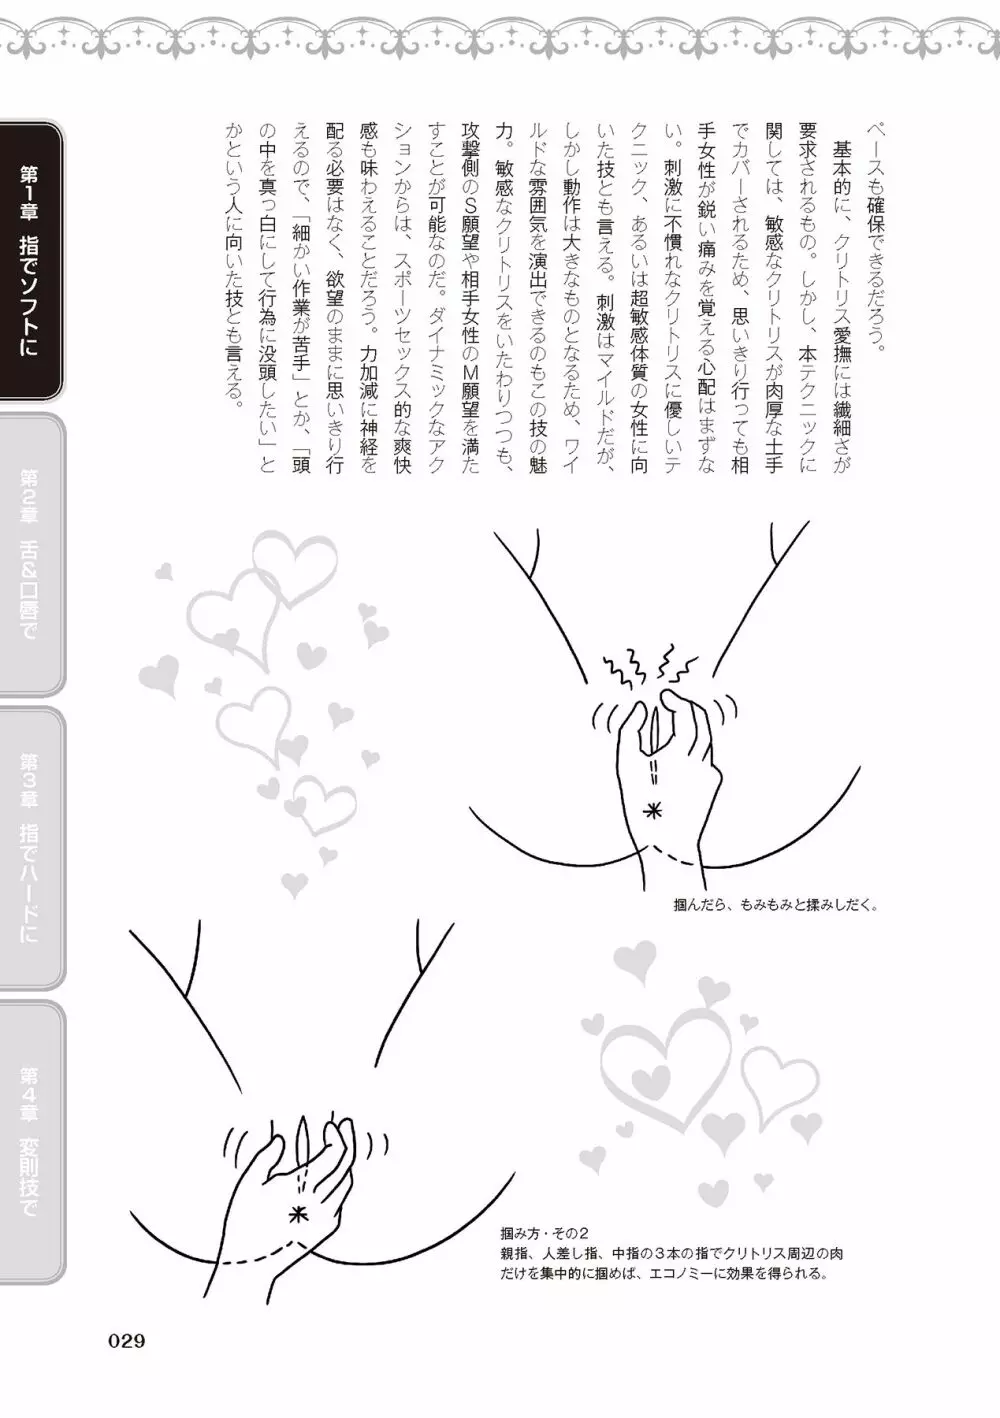 ペースも確保できるだろう。
　基本的に、クリトリス愛撫には繊細さが
要求されるもの。しかし、本テクニックに
関しては、敏感なクリトリスが肉厚な土手
でカバーされるため、思いきり行っても相
手女性が鋭い痛みを覚える心配はまずな
い。刺激に不慣れなクリトリスに優しいテ
クニック、あるいは超敏感体質の女性に向
いた技とも言える。刺激はマイルドだが、
しかし動作は大きなものとなるため、ワイ
ルドな雰囲気を演出できるのもこの技の魅
力。敏感なクリトリスをいたわりつつも、
攻撃側のS願望や相手女性のM願望を満た
すことが可能なのだ。ダイナミックなアク
ションからは、スポーツセックス的な爽快
感も味わえることだろう。力加減に神経を
配る必要はなく、欲望のままに思いきり行
えるので、「細かい作業が苦手」とか、「頭
の中を真っ白にして行為に没頭したい」と
かという人に向いた技とも言える。
第1章 指でソフトに
第2章 舌&口唇で
第3章 指でハードに
第4章 変則技で
掴んだら、もみもみと揉みしだく。
掴み方・その2
親指、人差し指、中指の3本の指でクリトリス周辺の肉
だけを集中的に掴めば、エコノミーに効果を得られる。
029